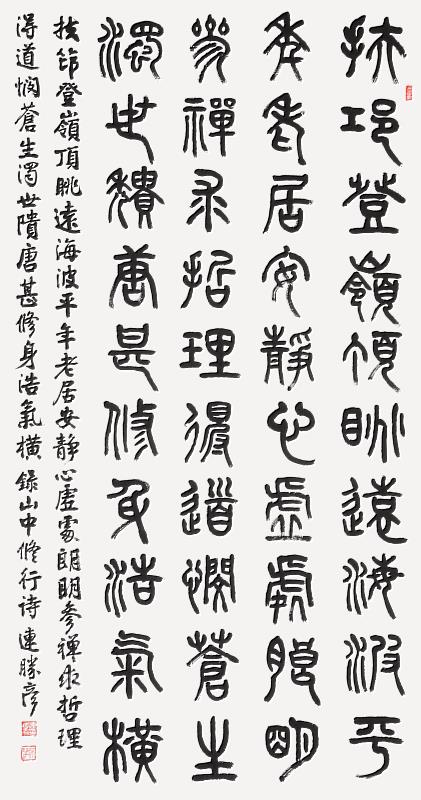 扶邛登嶺頂眺遠海波平
年老居安靜心虛處朗明
參禪求哲理得道憫蒼生
濁世穨唐甚修身浩氣橫
扶筇登嶺頂眺遠海波平年老居安靜心虛處朗明參禪求哲理
得道憫蒼生濁世隤唐甚修身浩氣橫錄山中修行詩連勝彥